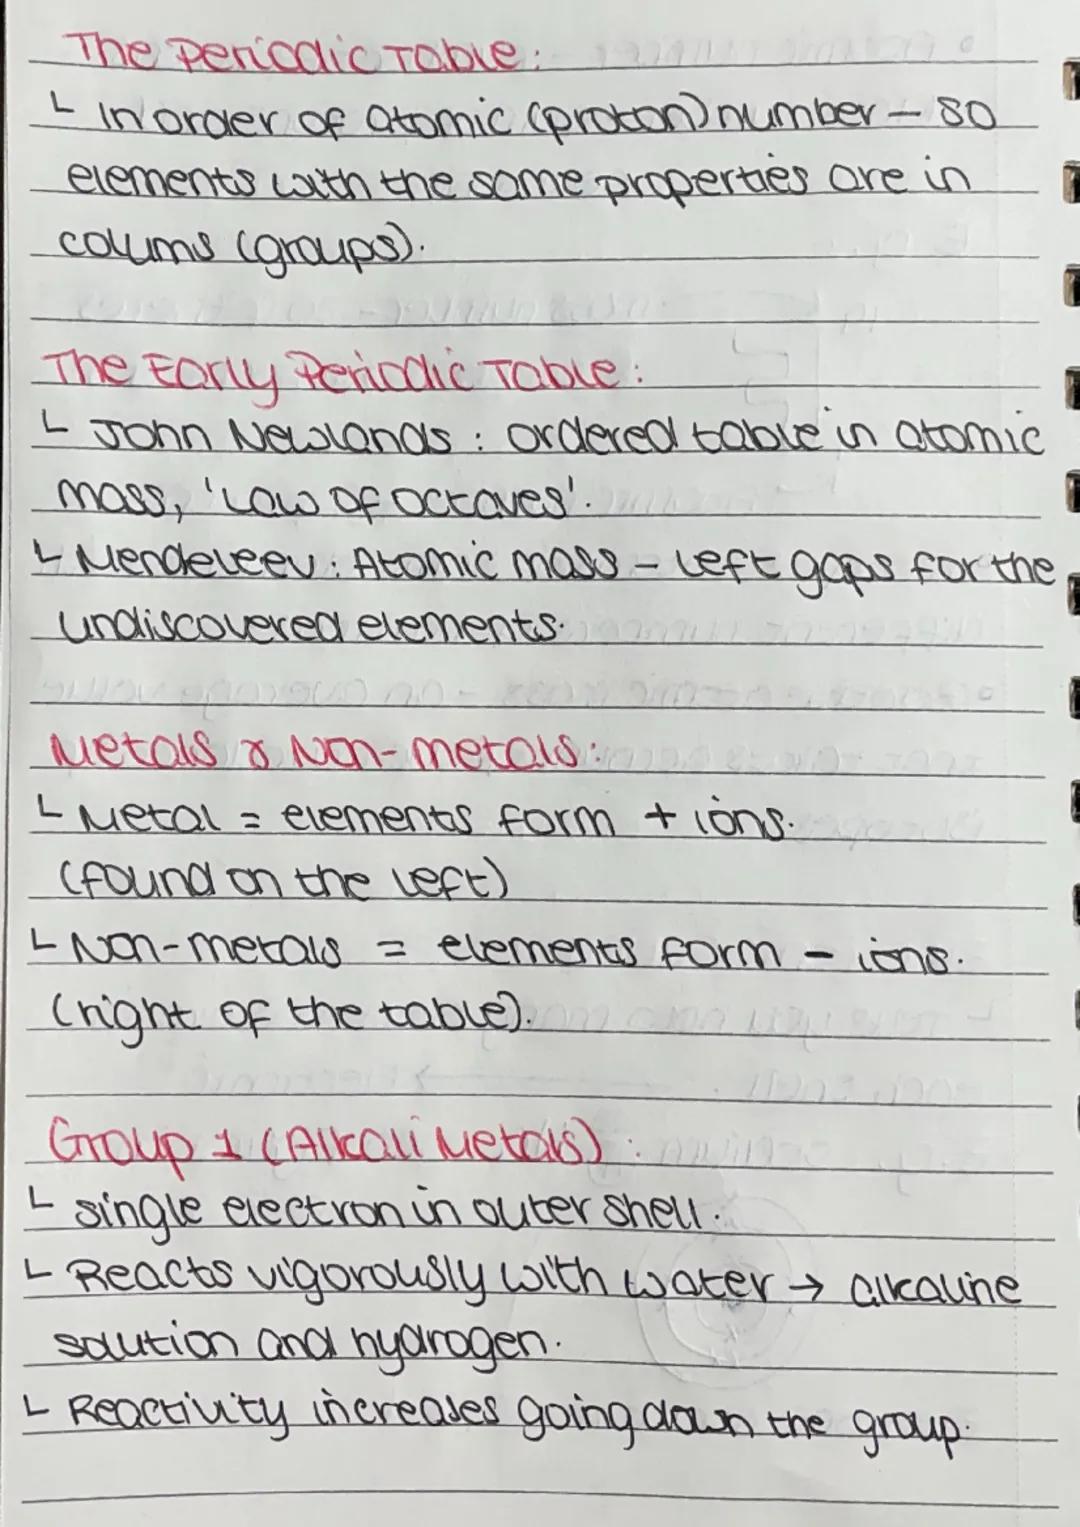 The Periodic Table:
└ In order of atomic (proton) number - so
elements with the same properties are in
colums (groups).
The Early Periodic Table:
└ John Newlands: ordered table in atomic
mass, 'Law of Octaves'.
└ Mendeleev: Atomic mass - Left gaps for the
undiscovered elements.
Metals & Non-metals:
└ Metal = elements form + ions.
(found on the left)
└ Non-metals = elements form - ions.
(right of the table).
Group 1 (Alkali Metals):
└ single electron in outer shell.
└ Reacts vigorously with water → alkaline
solution and hydrogen.
└ Reactivity increases going down the group.